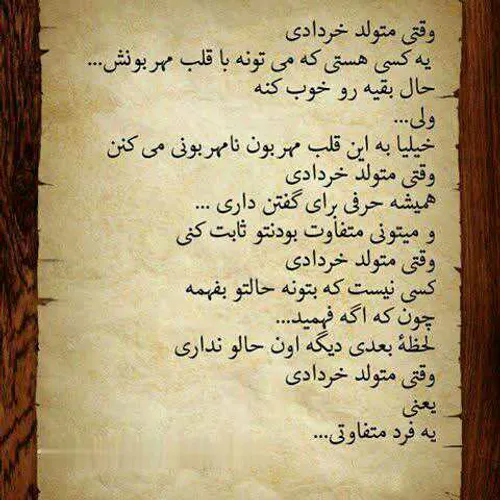 وقتی متولد خردادی
یه کسی هستی که می تونه با قلب مهربونش...
حال بقیه رو خوب کنه
ولی...
خیلیا به این قلب مهربون نامهربونی می کنن
وقتی متولد خردادی
همیشه حرفی برای گفتن داری ...
و میتونی متفاوت بودنتو ثابت کنی
وقتی متولد خردادی
کسی نیست که بتونه حالتو بفهمه
چون که اگه فهمید...
لحظهٔ بعدی دیگه اون حالو نداری
وقتی متولد خردادی
یعنی
یه فرد متفاوتی...